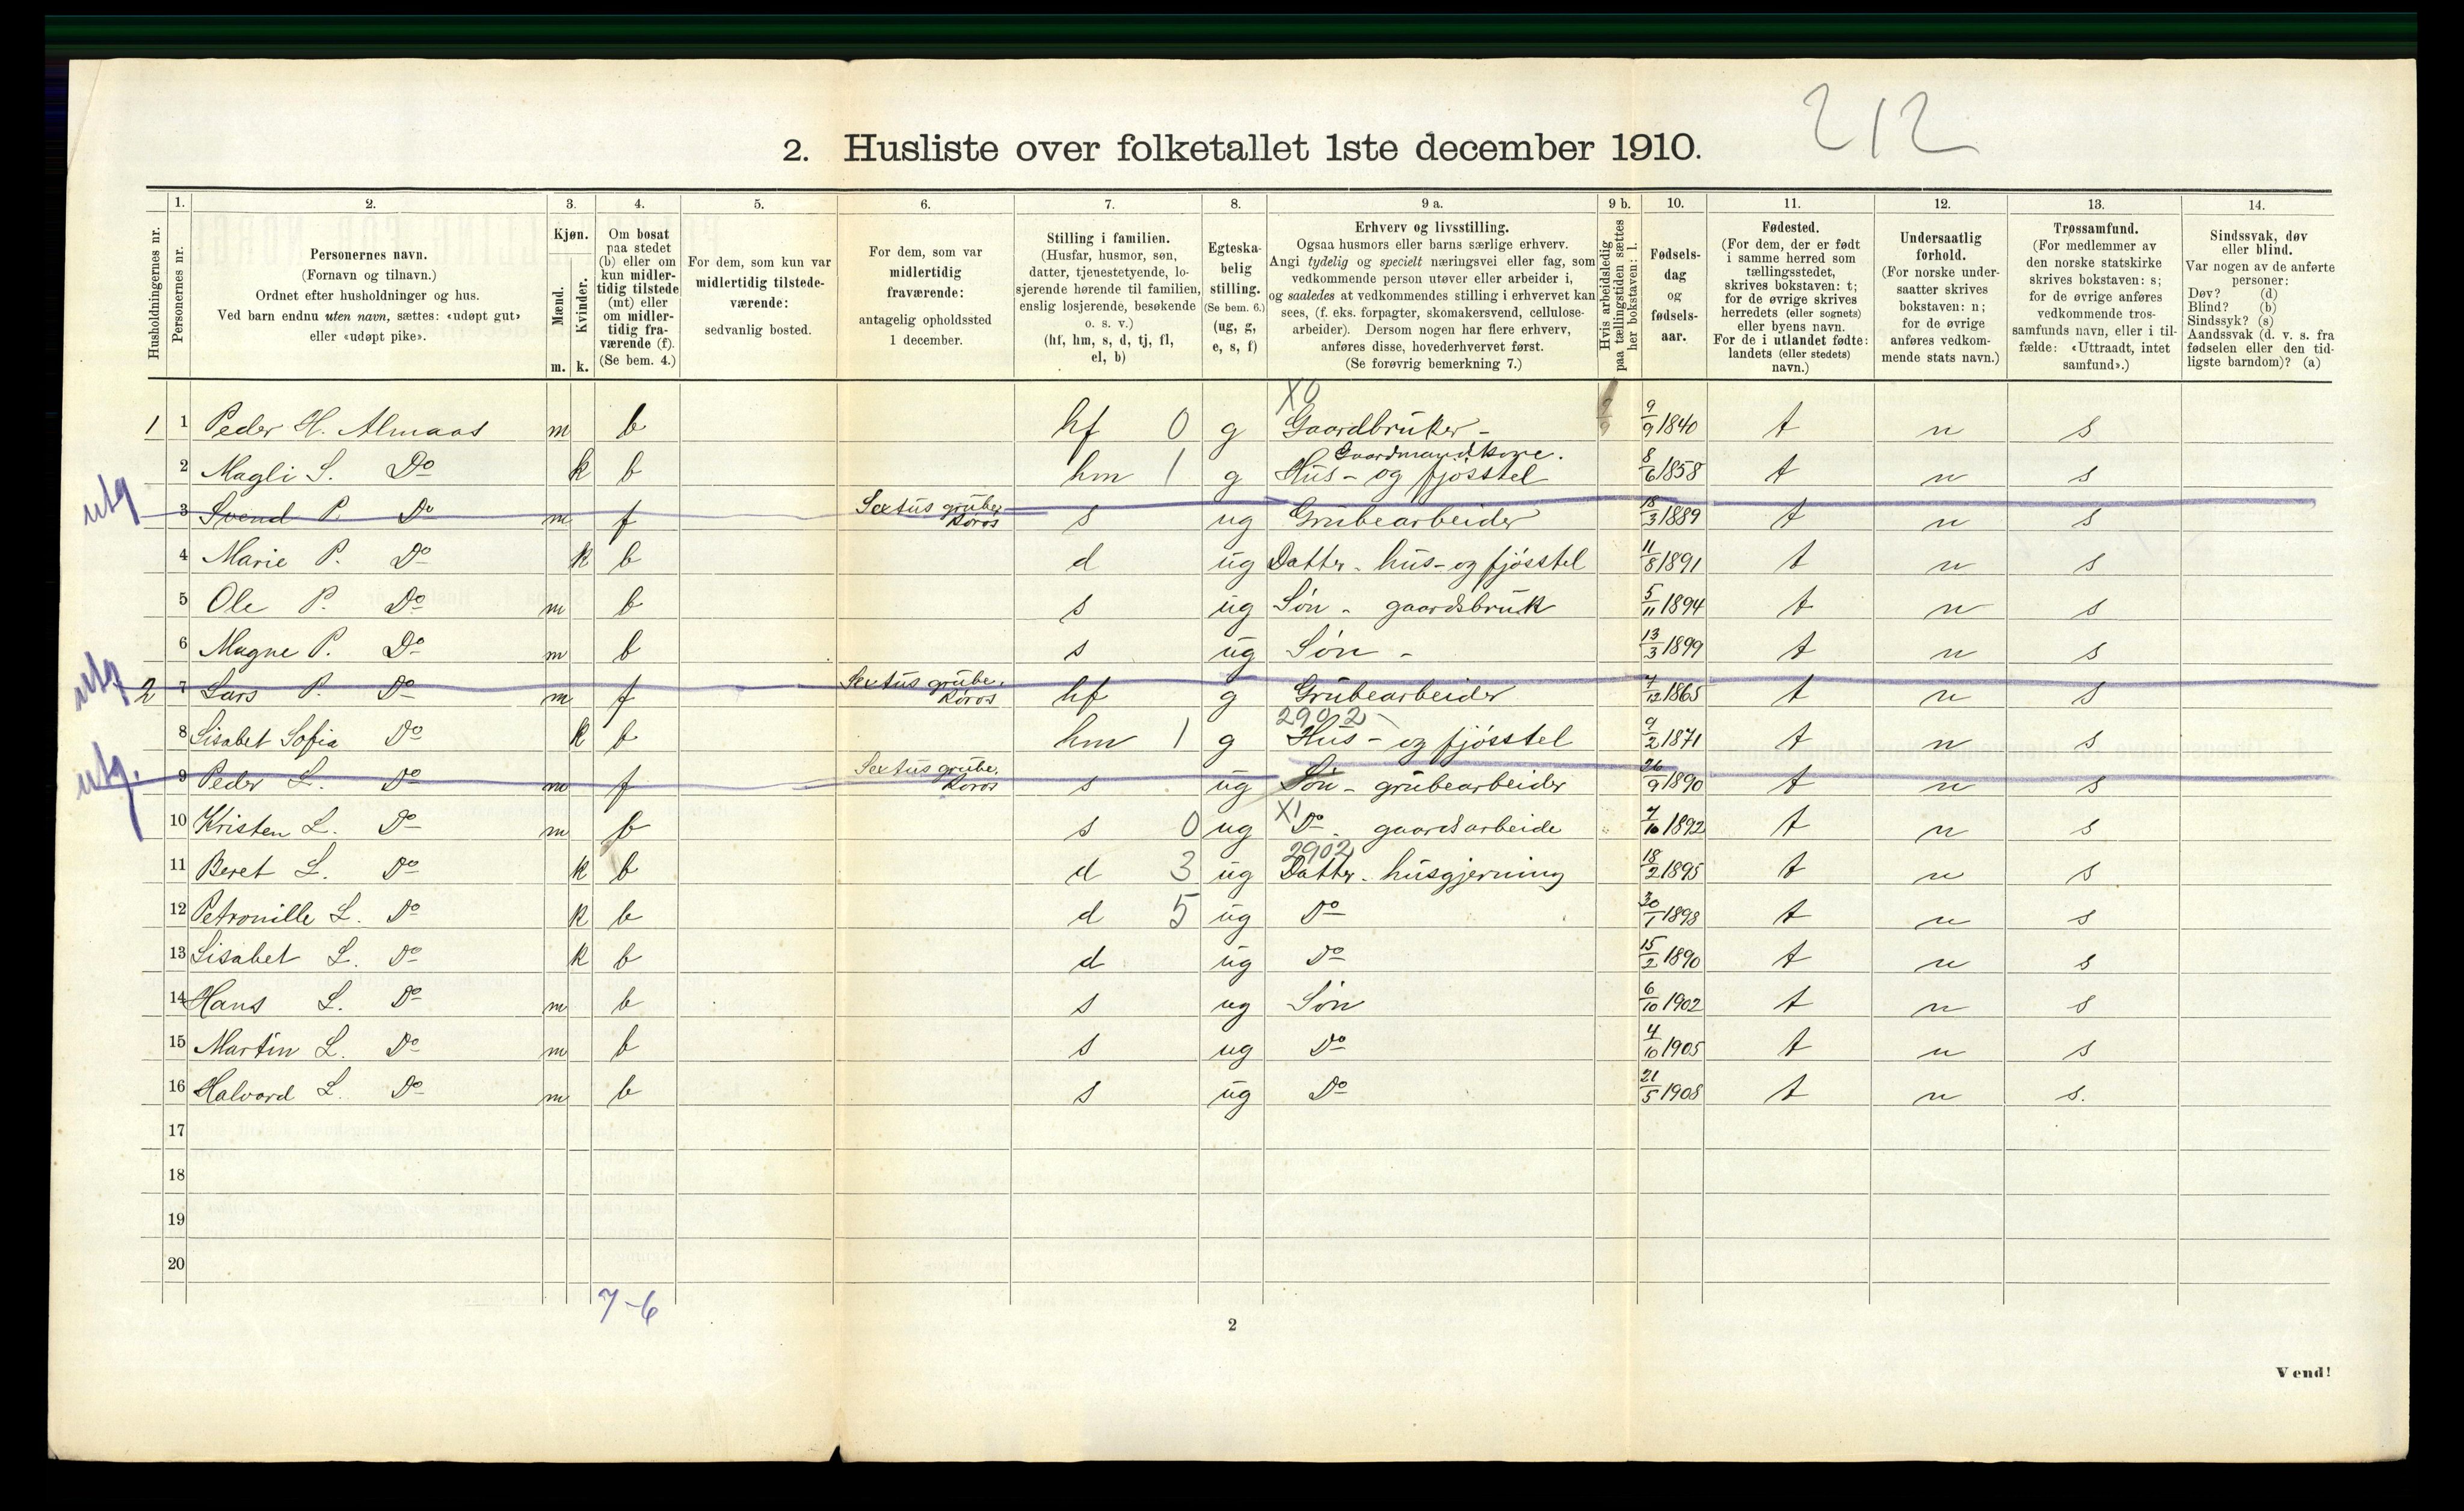 212
2. Husliste over folketallet 1ste december 1910.
1. 2. 3. 4. 5. 6. 7. 8. 9 a. 9 b. 10. 11. 12. 13. 14.
Husholdningernes nr.
Personernes nr.
Personernes navn.
(Fornavn og tilnavn.)
Ordnet efter husholdninger og hus.
Ved barn endnu uten navn, sættes: «udøpt gut»
eller «udøpt pike».
Kjøn.
Mænd.
Kvinder.
m. k.
Om bosat
paa stedet
(b) eller om
kun midler-
tidig tilstede
(mt) eller
om midler-
tidig fra-
værende (f).
(Se bem. 4.)
For dem, som kun var
midlertidig tilstede-
værende:
sedvanlig bosted.
For dem, som var
midlertidig
fraværende:
antagelig opholdssted
1 december.
Stilling i familien.
(Husfar, husmor, søn,
datter, tjenestetyende, lo-
sjerende hørende til familien,
enslig losjerende, besøkende
o. s. v.)
(hf, hm, s, d, tj, fl,
el, b)
Egteska-
belig
stilling.
(Se bem. 6.)
(ug, g,
e, s, f)
Erhverv og livsstilling.
Ogsaa husmors eller barns særlige erhverv.
Angi tydelig og specielt næringsvei eller fag, som
vedkommende person utøver eller arbeider i,
og saaledes at vedkommendes stilling i erhvervet kan
sees, (f. eks. forpagter, skomakersvend, cellulose-
arbeider). Dersom nogen har flere erhverv,
anføres disse, hovederhvervet først.
(Se forøvrig bemerkning 7.)
Hvis arbeidsledig
paa tællingstiden sættes
her bokstaven: l.
Fødsels-
dag
og
fødsels-
aar.
Fødested.
(For dem, der er født
i samme herred som
tællingsstedet,
skrives bokstaven: t;
for de øvrige skrives
herredets (eller sognets)
eller byens navn.
For de i utlandet fødte:
landets (eller stedets)
navn.)
Undersaatlig
forhold.
(For norske under-
saatter skrives
bokstaven: n;
for de øvrige
anføres vedkom-
mende stats navn.)
Trossamfund.
(For medlemmer av
den norske statskirke
skrives bokstaven: s;
for de øvrige anføres
vedkommende tros-
samfunds navn, eller i til-
fælde: «Uttraadt, intet
samfund».)
Sindssvak, døv
eller blind.
Var nogen av de anførte
personer:
Døv? (d)
Blind? (b)
Sindssyk? (s)
Aandssvak (d. v. s. fra
fødselen eller den tid-
ligste barndom)? (a)
X0
1 1 Peder H. Almaas m b hf 0 g Gaardbruker - 9/9 1840 t n s
Gaardmandskone.
2 Magli S. Do k b hm 1 g Hus- og fjösstel 8/6 1858 t n s
utg 3 Svend P. Do m f Sextus grube, Röros s ug Grubearbeider 18/3 1889 t n s
4 Marie P. Do k b d ug Datter - hus- og fjösstel 11/8 1891 t n s
5 Ole P. Do m b s ug Sön - gaardsbruk 5/11 1894 t n s
6 Magne P. Do m b s ug Sön - 13/3 1899 t n s
utg 2 7 Lars P. Do m f Sextus grube, Röros hf g Grubearbeider 7/12 1865 t n s
2902
8 Lisabet Sofia Do k b hm 1 g Hus- og fjösstel 9/2 1871 t n s
utg. 9 Peder L. Do m f Sextus grube, Röros s ug Sön - grubearbeider 26/9 1890 t n s
X1
10 Kristen L. Do m b s 0 ug Do - gaardsarbeide 7/10 1892 t n s
2902
11 Beret L. Do k b d 3 ug Datter - husgjerning 18/2 1895 t n s
12 Petronille L. Do k b d 5 ug Do 30/1 1898 t n s
13 Lisabet L. Do k b d ug Do 15/2 1890 t n s
14 Hans L. Do m b s ug Sön 6/10 1902 t n s
15 Martin L. Do m b s ug Do 4/10 1905 t n s
16 Halvard L. Do m b s ug Do 21/5 1908 t n s.
17
18
19
20
7-6
2
Vend!